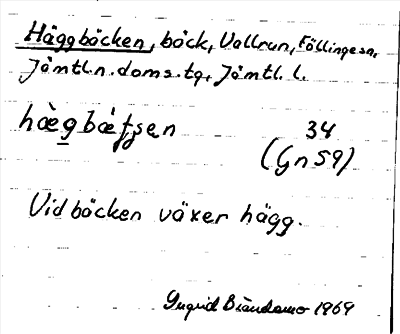 Häggbäcken, bäck, Vallrun, Föllinge sn,
Jämtl. n. doms. tg, Jämtl. l.
34
(Gn 59)
Vid bäcken växer hägg.
Ingrid 1969